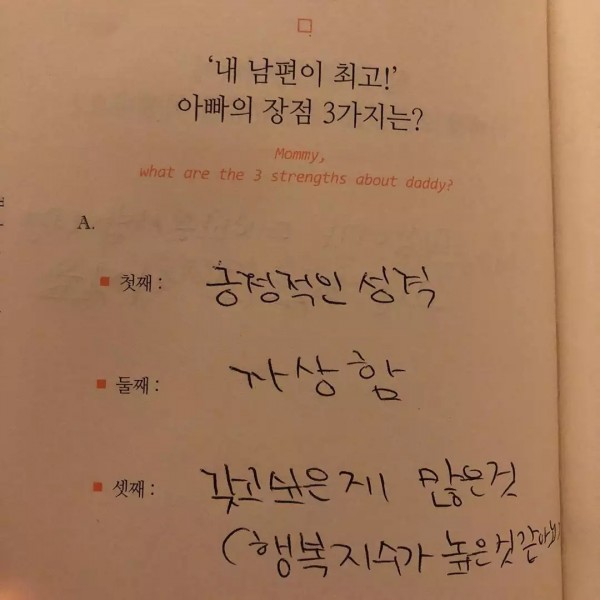 '내 남편이 최고!'
아빠의 장점 3가지는?
Mommy,
what are the 3 strengths about daddy?
A.
첫째 : 긍정적인 성격
둘째 : 자상함
셋째 : 갖고싶은게 많은것
(행복지수가 높은것같아보